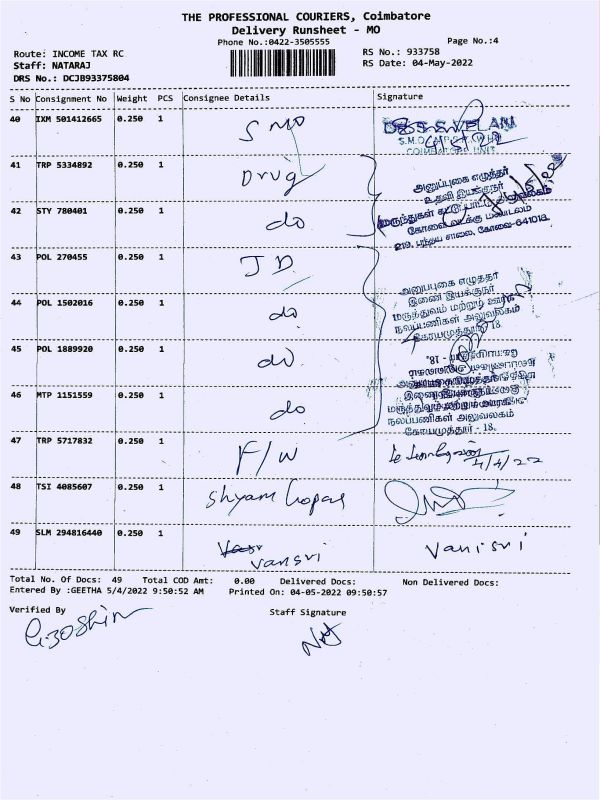 THE PROFESSIONAL COURIERS, Coimbatore
Delivery Runsheet - MO
Phone No.:0422-3505555
Page No.:4
Route: INCOME TAX RC
RS No.: 933758
Staff: NATARAJ
RS Date: 04-May-2022
DRS No.: DCJB93375804
S No Consignment No Weight PCS Consignee Details Signature
40 IXM 501412665 0.250 1 SMO
41 TRP 5334892 0.250 1 Drug
அனுப்புகை எழுத்தர்
உதவி இயக்குநர்
42 STY 780401 0.250 1 do
கோவை
219, பந்தய சாலை, கோவை-641018
43 POL 270455 0.250 1 JD
அனுப்புகை எழுத்தர்
இணை இயக்குநர்
44 POL 1502016 0.250 1 do
மருத்துவம் மற்றும் ஊரக
நலப்பணிகள் அலுவலகம்
கோயமுத்தூர் 18.
45 POL 1889920 0.250 1 do
46 MTP 1151559 0.250 1 do
நலப்பணிகள் அலுவலகம்
கோயமுத்தூர் - 18.
47 TRP 5717832 0.250 1 F/W
4/4/22
48 TSI 4085607 0.250 1 Shyam Gopal
49 SLM 294816440 0.250 1 Vansri Vanisri
Total No. Of Docs: 49 Total COD Amt: 0.00 Delivered Docs: Non Delivered Docs:
Entered By :GEETHA 5/4/2022 9:50:52 AM Printed On: 04-05-2022 09:50:57
Verified By
Staff Signature